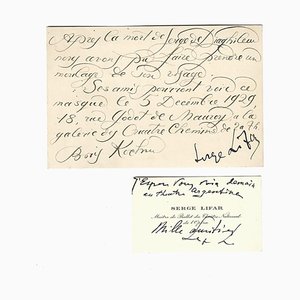 Après la mort de Serge de Diaghilew
nous avons pu faire prendre un
moulage de son visage.
Ses amis pourront voir ce
masque le 5 Décembre 1929
13, rue Godot de Mauroy à la
galerie des Quatre Chemins de
Boris Kochno
Serge Lifar
au théâtre Argentina
SERGE LIFAR
Maître de Ballet du Théâtre National
de l'Opéra
Mille amitiés